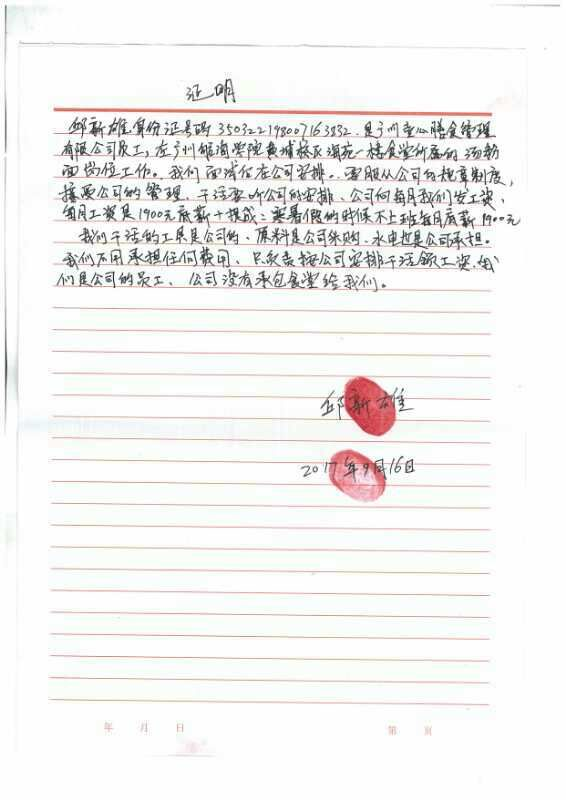 证明
邱新雄身份证号码 350322198007163832.是广州童心膳食管理
有限公司员工,在广州航海学院黄埔校区海苑一楼食堂所属的汤粉
面岗位工作。我们面试后在公司安排。要服从公司的规章制度,
接受公司的管理、干活要听公司的安排、公司向每月我们发工资、
每月工资是1900元底薪+提成;寒暑假的时候不上班每月底薪1900元
我们干活的工具是公司的、原料是公司采购、水电也是公司承担。
我们不用承担任何费用、只负责按公司安排干活领工资.我
们是公司的员工、公司没有承包食堂给我们。
邱新雄
2017年9月16日
年 月 日 第 页